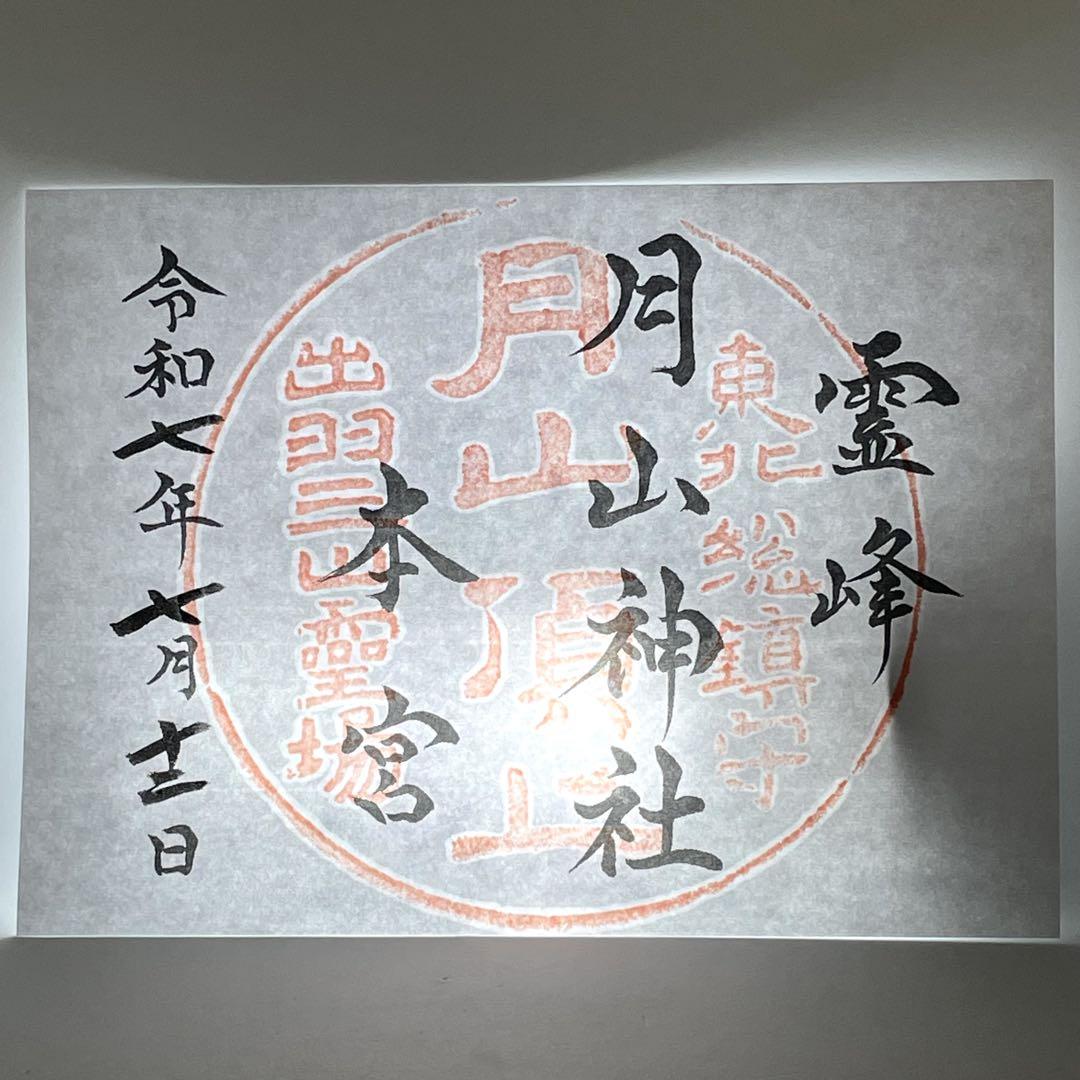 霊峰
月山神社
本宮
令和七年七月十三日
東北総鎮守
月山頂上
出羽三山霊場